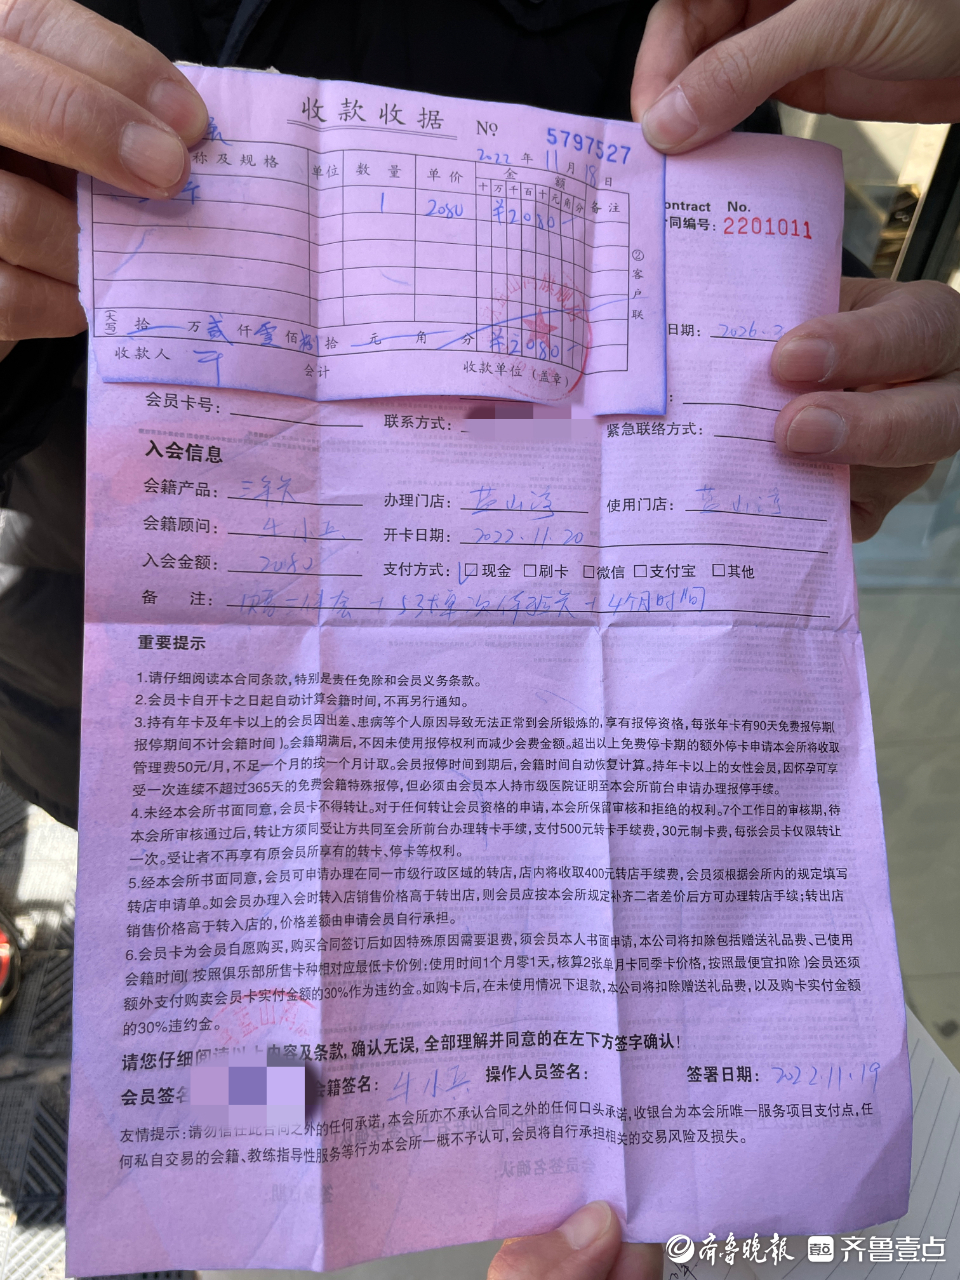 收款收据 № 5797527
2022年11月18日
称及规格 单位 数量 单价 金额 备注
十万千百十元角分
1 2080 ¥2080
②客户联
(大写) 拾 万贰仟零佰捌拾 元 角 分 ¥2080
收款人 会计 收款单位(盖章)
ontract No.
同编号: 2201011
日期: 2026.2
会员卡号: 联系方式: 紧急联络方式:
入会信息
会籍产品: 三年卡 办理门店: 蓝山湾 使用门店: 蓝山湾
会籍顾问: 牛小兵 开卡日期: 2022.11.20
入会金额: 2080 支付方式: □现金 □刷卡 □微信 □支付宝 □其他
备 注: +4个月时间
重要提示
1.请仔细阅读本合同条款,特别是责任免除和会员义务条款。
2.会员卡自开卡之日起自动计算会籍时间,不再另行通知。
3.持有年卡及年卡以上的会员因出差、患病等个人原因导致无法正常到会所锻炼的,享有报停资格,每张年卡有90天免费报停期(
报停期间不计会籍时间)。会籍期满后,不因未使用报停权利而减少会费金额。超出以上免费停卡期的额外停卡申请本会所将收取
管理费50元/月,不足一个月的按一个月计取。会员报停时间到期后,会籍时间自动恢复计算。持年卡以上的女性会员,因怀孕可享
受一次连续不超过365天的免费会籍特殊报停,但必须由会员本人持市级医院证明至本会所前台申请办理报停手续。
4.未经本会所书面同意,会员卡不得转让。对于任何转让会员资格的申请,本会所保留审核和拒绝的权利。7个工作日的审核期,待
本会所审核通过后,转让方须同受让方共同至会所前台办理转卡手续,支付500元转卡手续费,30元制卡费,每张会员卡仅限转让
一次。受让者不再享有原会员所享有的转卡、停卡等权利。
5.经本会所书面同意,会员可申请办理在同一市级行政区域的转店,店内将收取400元转店手续费,会员须根据会所内的规定填写
转店申请单。如会员办理入会时转入店销售价格高于转出店,则会员应按本会所规定补齐二者差价后方可办理转店手续;转出店
销售价格高于转入店的,价格差额由申请会员自行承担。
6.会员卡为会员自愿购买,购买合同签订后如因特殊原因需要退费,须会员本人书面申请,本公司将扣除包括赠送礼品费、已使用
会籍时间(按照俱乐部所售卡种相对应最低卡价例:使用时间1个月零1天,核算2张单月卡同季卡价格,按照最便宜扣除)会员还须
额外支付购卖会员卡实付金额的30%作为违约金。如购卡后,在未使用情况下退款,本公司将扣除赠送礼品费,以及购卡实付金额
的30%违约金。
请您仔细阅读以上内容及条款,确认无误,全部理解并同意的在左下方签字确认!
会员签名 会籍签名: 牛小兵 操作人员签名: 签署日期: 2022.11.19
友情提示:请勿信任此合同之外的任何承诺,本会所亦不承认合同之外的任何口头承诺,收银台为本会所唯一服务项目支付点,任
何私自交易的会籍、教练指导性服务等行为本会所一概不予认可,会员将自行承担相关的交易风险及损失。
齐鲁晚报 齐鲁壹点